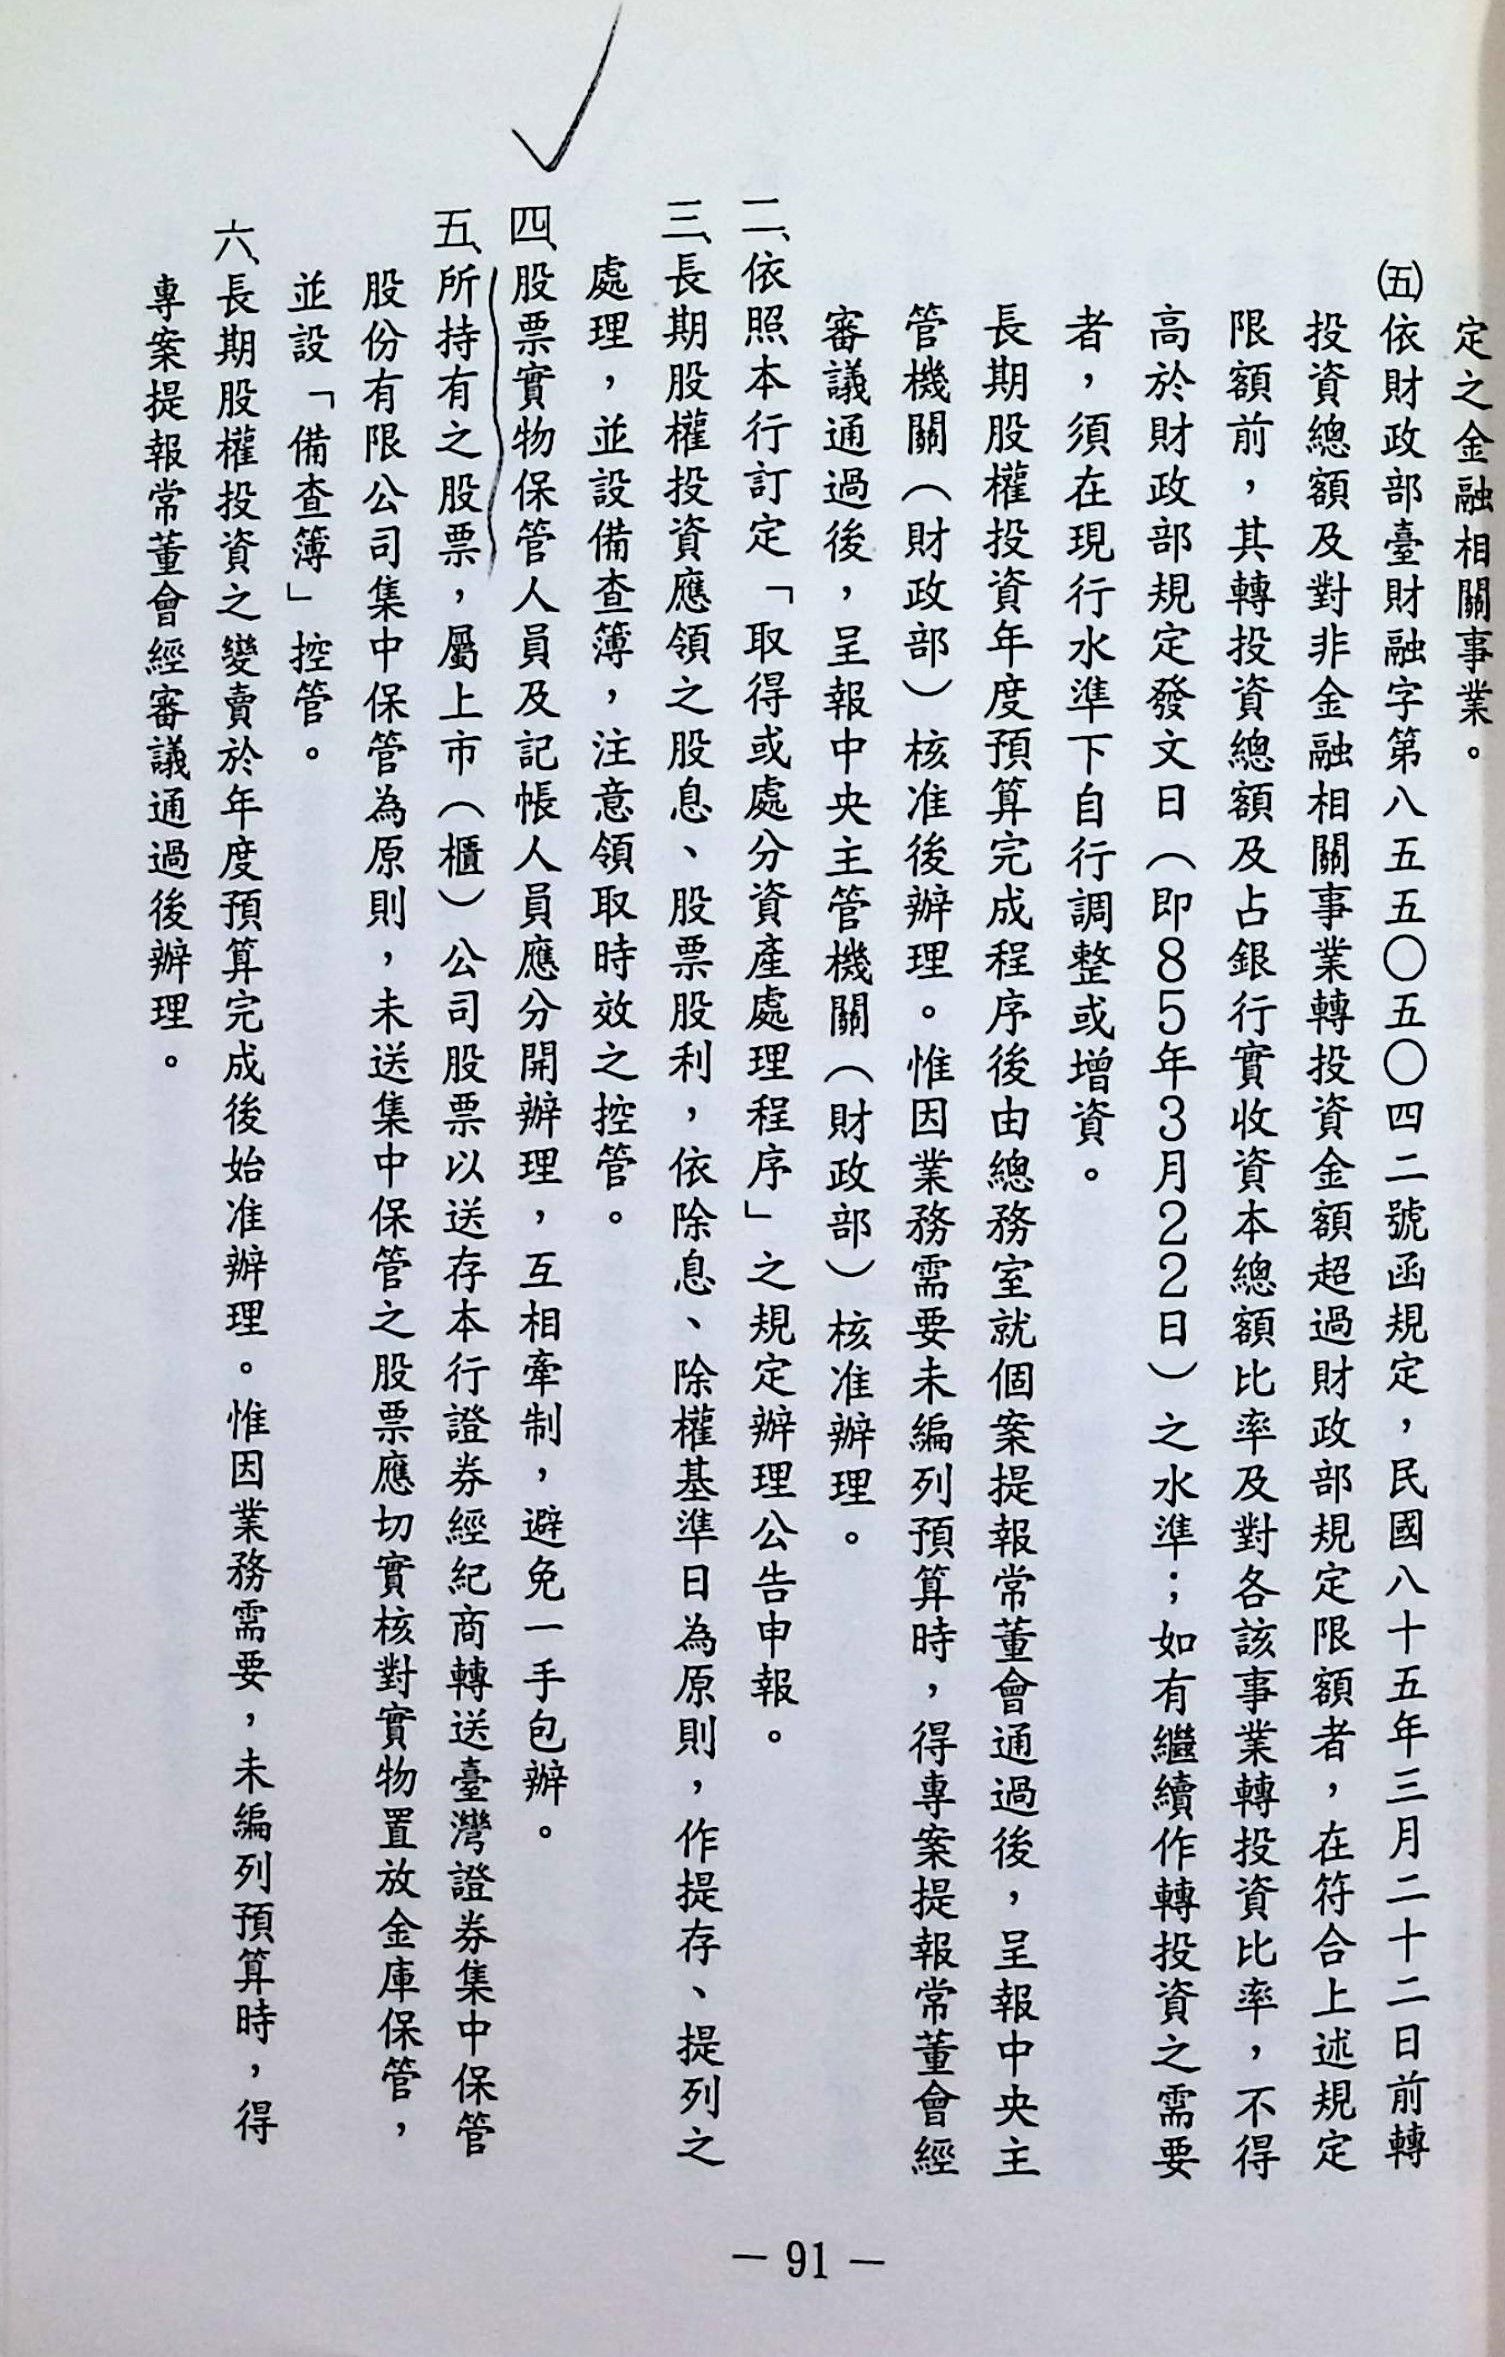 定之金融相關事業。
㈤依財政部臺財融字第八五五〇五〇四二號函規定，民國八十五年三月二十二日前轉
投資總額及對非金融相關事業轉投資金額超過財政部規定限額者，在符合上述規定
限額前，其轉投資總額及占銀行實收資本總額比率及對各該事業轉投資比率，不得
高於財政部規定發文日（即85年3月22日）之水準；如有繼續作轉投資之需要
者，須在現行水準下自行調整或增資。
長期股權投資年度預算完成程序後由總務室就個案提報常董會通過後，呈報中央主
管機關（財政部）核准後辦理。惟因業務需要未編列預算時，得專案提報常董會經
審議通過後，呈報中央主管機關（財政部）核准辦理。
二、依照本行訂定「取得或處分資產處理程序」之規定辦理公告申報。
三、長期股權投資應領之股息、股票股利，依除息、除權基準日為原則，作提存、提列之
處理，並設備查簿，注意領取時效之控管。
四、股票實物保管人員及記帳人員應分開辦理，互相牽制，避免一手包辦。
五、所持有之股票，屬上市（櫃）公司股票以送存本行證券經紀商轉送臺灣證券集中保管
股份有限公司集中保管為原則，未送集中保管之股票應切實核對實物置放金庫保管，
並設「備查簿」控管。
六、長期股權投資之變賣於年度預算完成後始准辦理。惟因業務需要，未編列預算時，得
專案提報常董會經審議通過後辦理。
— 91 —